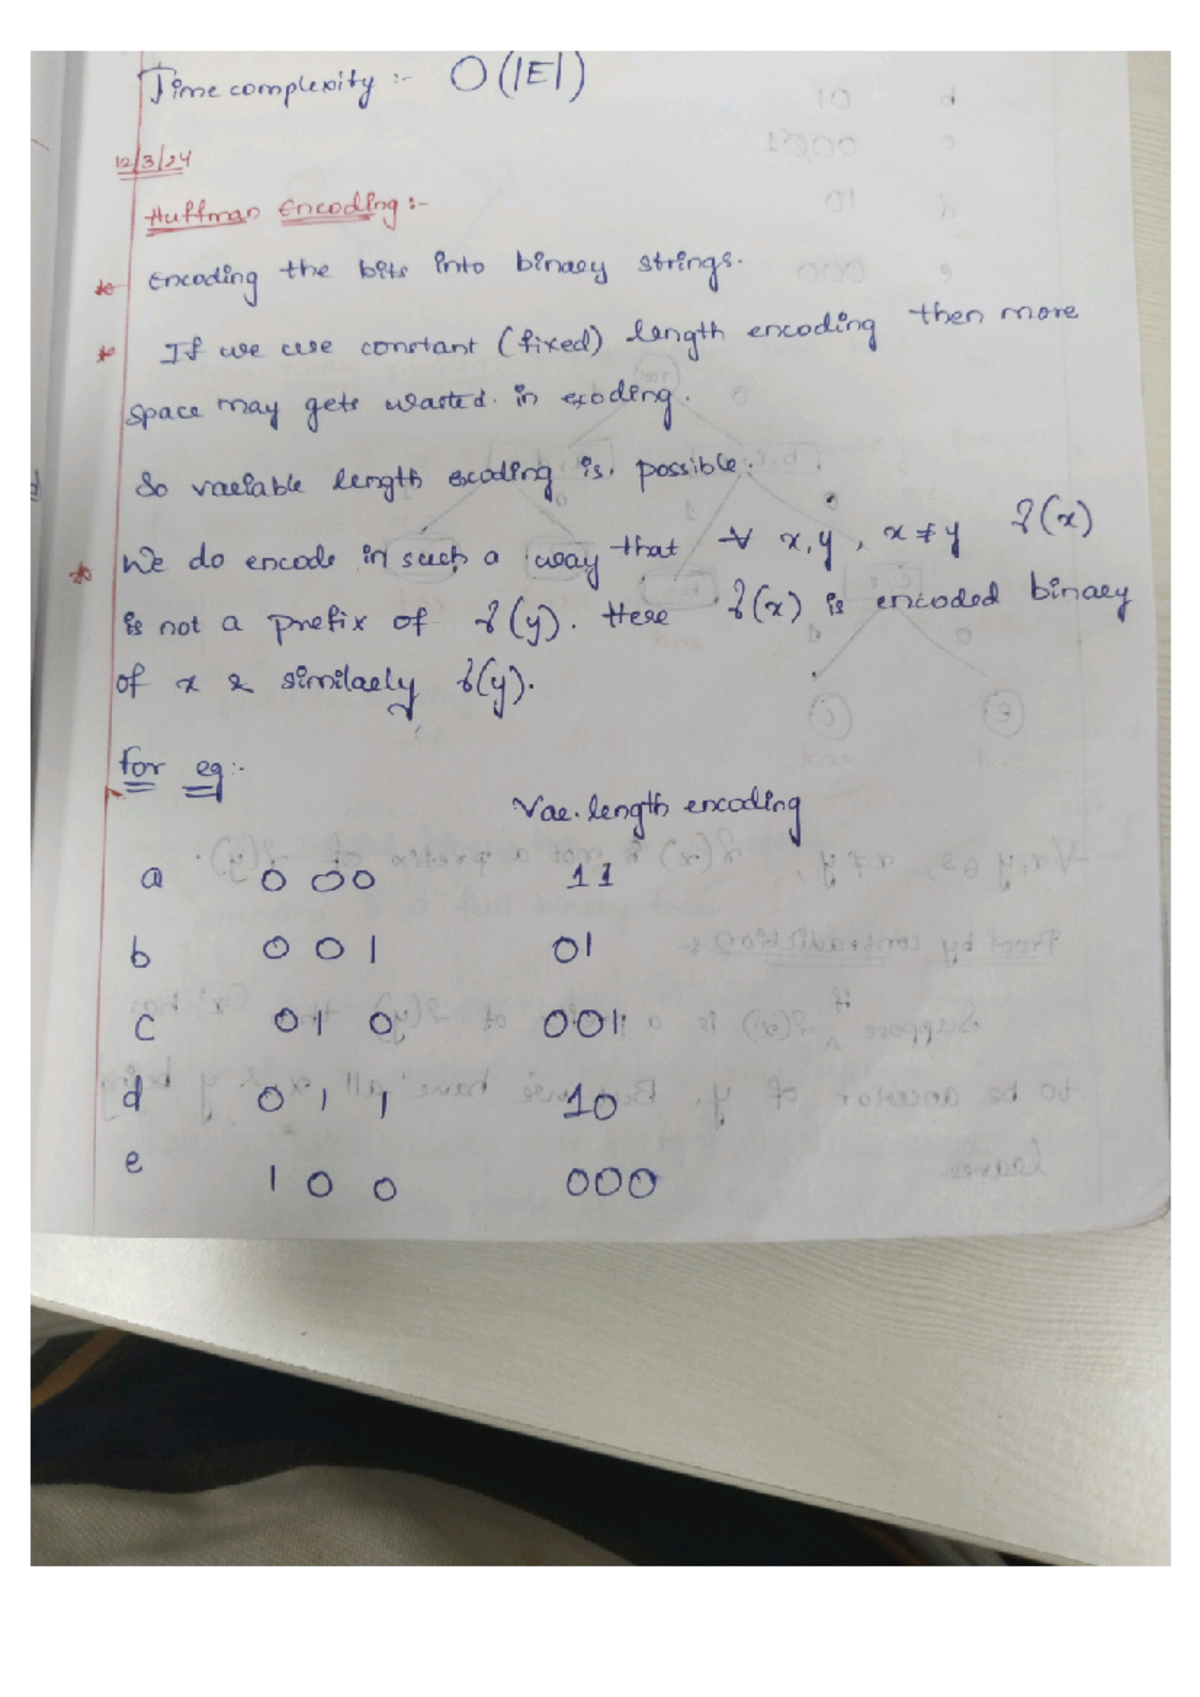 Time complexity :- O(|E|)
12/3/24
Huffman Encoding :-
* Encoding the bits into binary strings.
* If we use constant (fixed) length encoding then more
space may gets wasted. in exoding.
So variable length excoding is. possible.
* We do encode in such a way that ∀ x,y , x ≠ y γ(x)
is not a prefix of γ(y). Here γ(x) is encoded binary
of x & similarly γ(y).
for eg :-
Var. length encoding
a 0 0 0 11
b 0 0 1 01
c 0 1 0 001
d 0 1 1 10
e 1 0 0 000